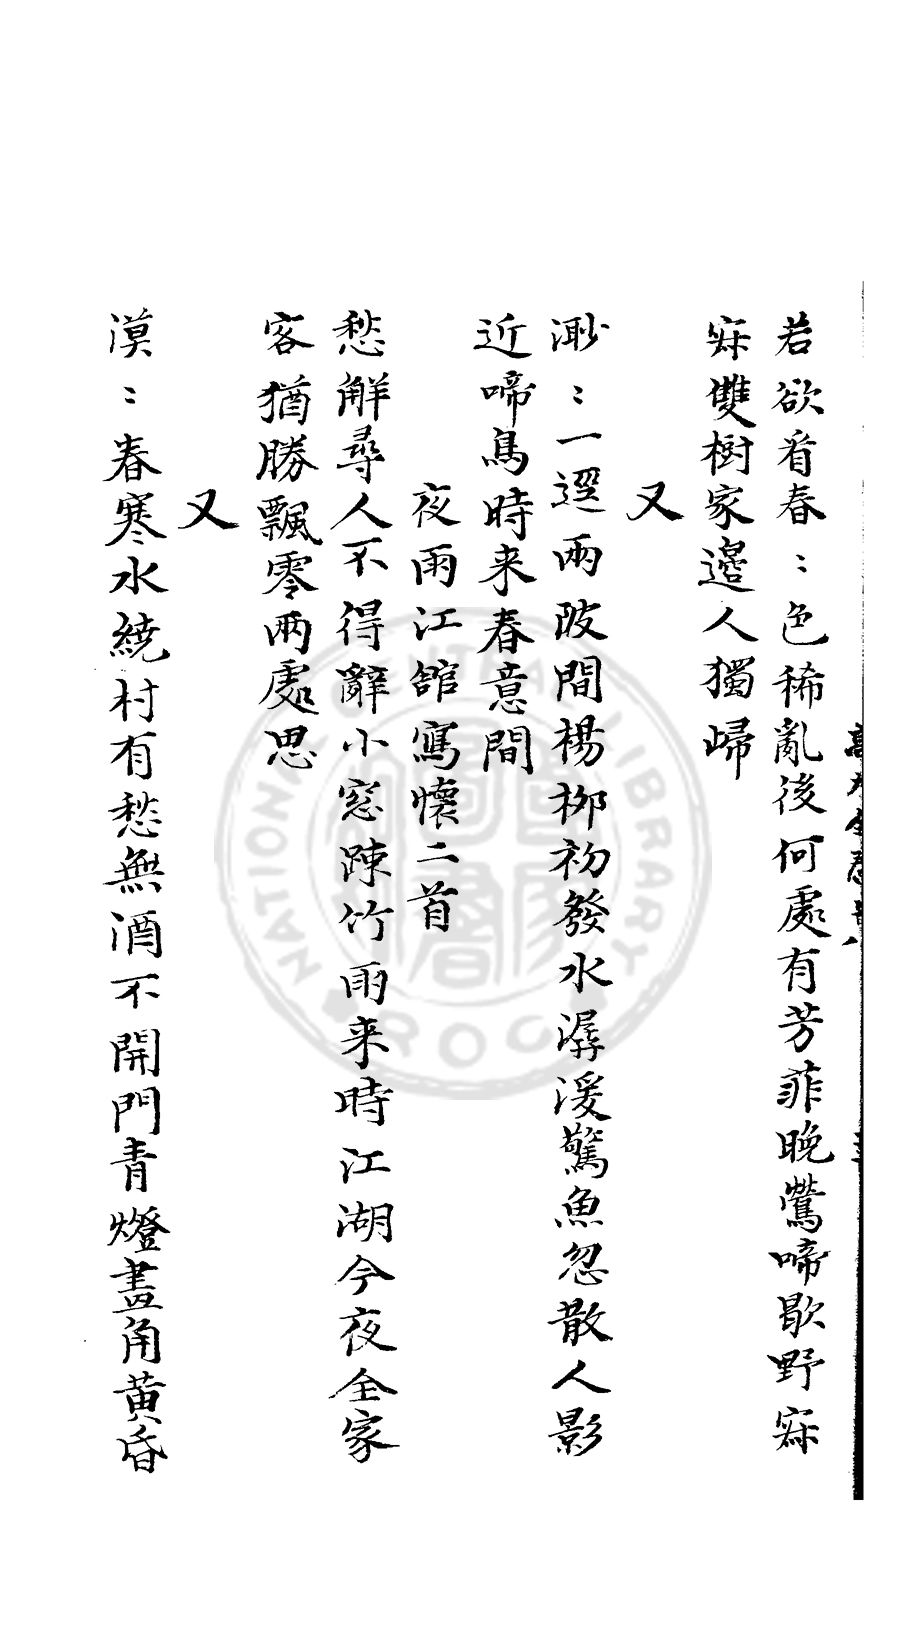 若欲看春〻色稀亂後何處有芳菲晚鶯啼歇野寂
寂雙樹家邊人獨歸
又
渺〻一逕兩陂間楊柳初發水潺湲驚魚忽散人影
近啼鳥時来春意間
夜雨江舘寫懷二首
愁解尋人不得辭小窓踈竹雨来時江湖今夜全家
客猶勝飄零兩處思
又
漠〻春寒水繞村有愁無酒不開門青燈畫角黃昏
NATIONAL CENTRAL LIBRARY
ROC